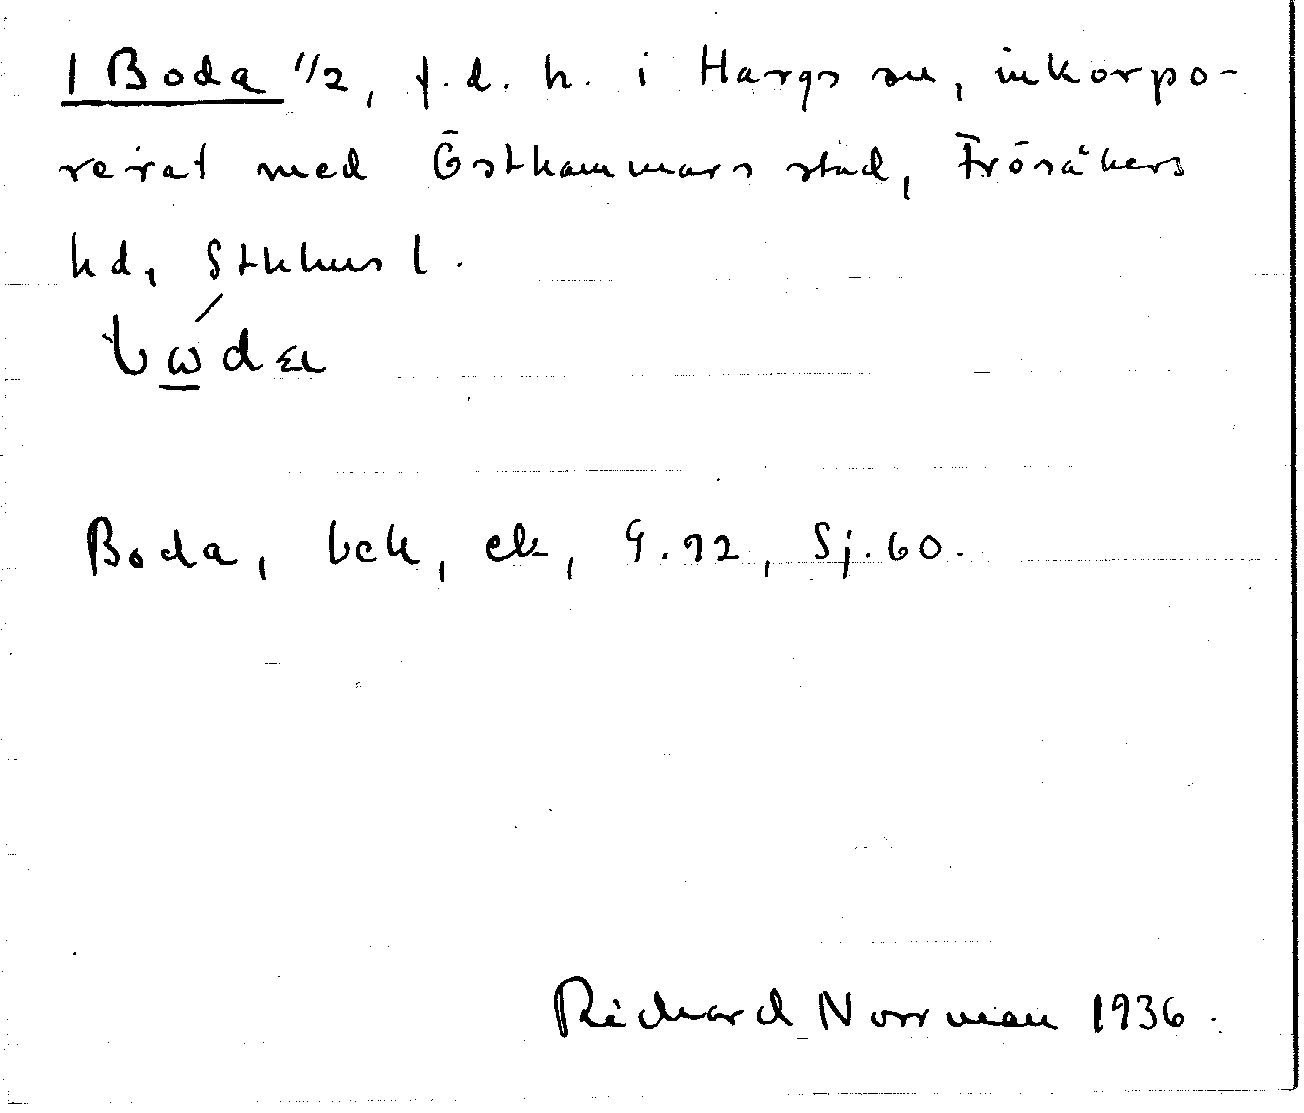 1 Boda 1/2, f.d. h. i Hargs sn, inkorpo-
rerat med Östhammars stad, Frösåkers
hd, Sthhus l.
Boda, bek, ek, G.92, Sj.60.
Richard Norrman 1936.